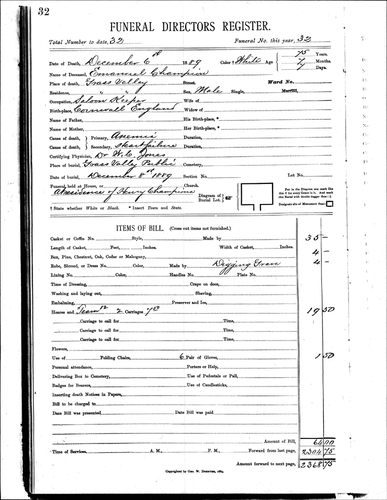 32
FUNERAL DIRECTORS REGISTER.
Total Number to date, 32 Funeral No. this year, 32
Date of Death, December 6th 1889 Color † White Age 75 Years 7 Months Days.
Name of Deceased, Emanuel Champion
Place of Death, Grass Valley Street, Ward No.
Residence, Sex, Male Single, Married,
Occupation, Saloon Keeper Wife of
Birth-place,* Cornwall England Widow of
Name of Father, His Birth-place,*
Name of Mother, Her Birth-place,*
Cause of death, Primary, Anemia Duration,
Cause of death, Secondary, Heart failure Duration,
Certifying Physician, Dr W. C. Jones
Place of burial, Grass Valley Public Cemetery,
Date of burial, December 8th 1889 Section No. Lot No.
Funeral held at House, or Church. At residence of Henry Champion
Diagram of Burial Lot.
† State whether White or Black. * Insert Town and State.
ITEMS OF BILL. (Cross out items not furnished.)
Casket or Coffin No. Style, Made by 35 -
Length of Casket, Feet, Inches. Width of Casket, Inches.
Box, Pine, Chestnut, Oak, Cedar or Mahogany, Made by 4 -
Robe, Shroud, or Dress No. Color, Made by Digging Grave 4 -
Lining No. Color, Handles No. Plate No.
Time of Dressing, Crape on door,
Washing and laying out, Shaving,
Embalming, Preserver and Ice,
Hearse and Team 12 2 Carriages 7 50 19 50
Carriage to call for Time,
Carriage to call for Time,
Carriage to call for Time,
Flowers,
Use of Folding Chairs, 6 Pair of Gloves, 1 50
Personal attendance, Porters or Help,
Delivering Box to Cemetery, Use of Pedestals or Pall,
Badges for Bearers, Use of Candlesticks,
Inserting death Notices in Papers,
Bill to be charged to
Date Bill was presented Date Bill was paid
Amount of Bill, 64 00
Time of Services, A. M., P. M. Forward from last page, 2304 75
Amount forward to next page, 2368 75